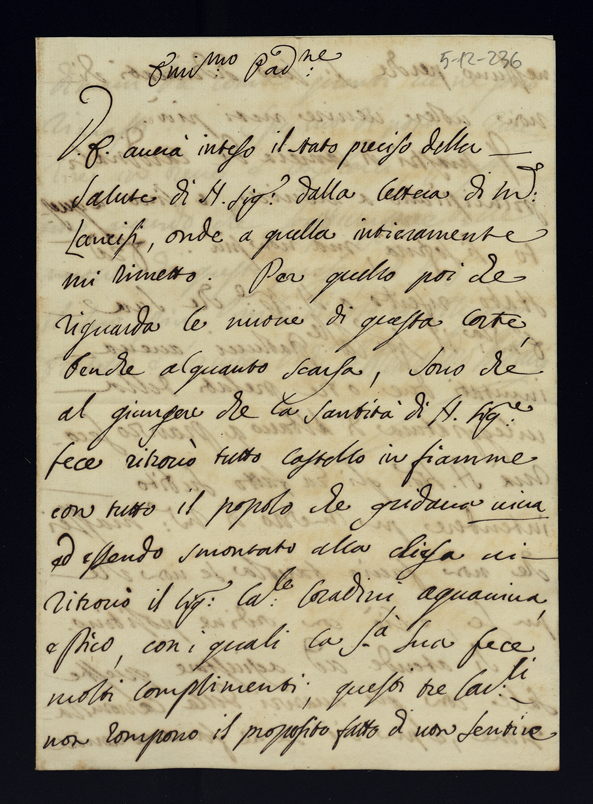 5-12-236
Emi:mo Pad:ne
V. E. averà inteso il stato preciso della
salute di N. Sig.e dalla lettera di M:
Lancisi, onde a quella intieramente
mi rimetto. Per quello poi che
riguarda le nuove di questa Corte,
benche alquanto scarsa, sono che
al giungere che la Santità di N. Sig.re
fece ritrovò tutto Castello in fiamme
con tutto il popolo che gridava viva
ed essendo smontato alla chiesa vi
ritrovò il Sig.r Ca:le Coradini, aquaviva,
e Pico, con i quali la S.à Sua fece
molti complimenti; questi tre Car:li
non rompono il proposito fatto di non sentire